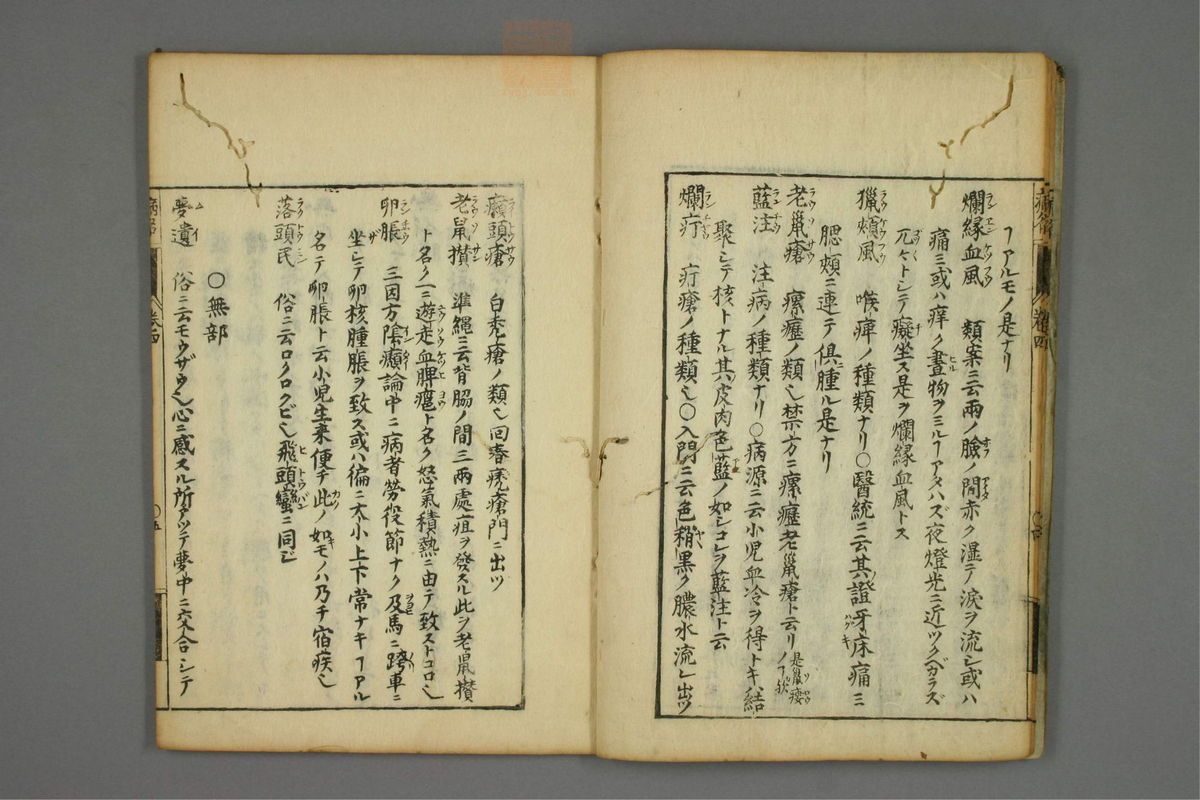 ヿアルモノ是ナリ
爛縁血風 類案ニ云兩ノ臉ノ間赤ク湿テ涙ヲ流シ或ハ
痛ミ或ハ痒ク晝物ヲミルヿアタハズ夜燈光ニ近ツクベカラズ
兀々トシテ癡坐ス是ヲ爛縁血風トス
獵頰風 喉痺ノ種類ナリ〇醫統ニ云其證牙床痛ミ
腮頰ニ連テ俱ニ腫ル是ナリ
老鼠瘡 瘰癧ノ類也禁方ニ瘰癧老鼠瘡ト云リ是鼠瘻ノヿ歟
藍注 注病ノ種類ナリ〇病源ニ云小児血冷ヲ得トキハ結
聚シテ核トナル其皮肉色藍ノ如シコレヲ藍注ト云
爛疔 疔瘡ノ種類也〇入門ニ云色稍黒ク膿水流レ出ツ
癩頭瘡 白禿瘡ノ類也回春禿瘡門ニ出ツ
老鼠攅 準繩ニ云背脇ノ間ニ兩處疽ヲ發スル此ヲ老鼠攅
ト名ク一ニ遊走血脾癰ト名ク怒氣積熱ニ由テ致ストコロ也
卵脹 三因方陰㿗論中ニ病者勞役節ナク及馬ニ跨車ニ
坐シテ卵核腫脹ヲ致ス或ハ徧ニ大小上下常ナキヿアル
名テ卵脹ト云小児生来便チ此ノ如キモノハ乃チ宿疾也
落頭民 俗ニ云ロクロクビ也飛頭蠻ニ同シ
〇無部
夢遺 俗ニ云モウザウ也心ニ感スル所アツテ夢中ニ交合シテ
病名
卷四
〇五
卷四